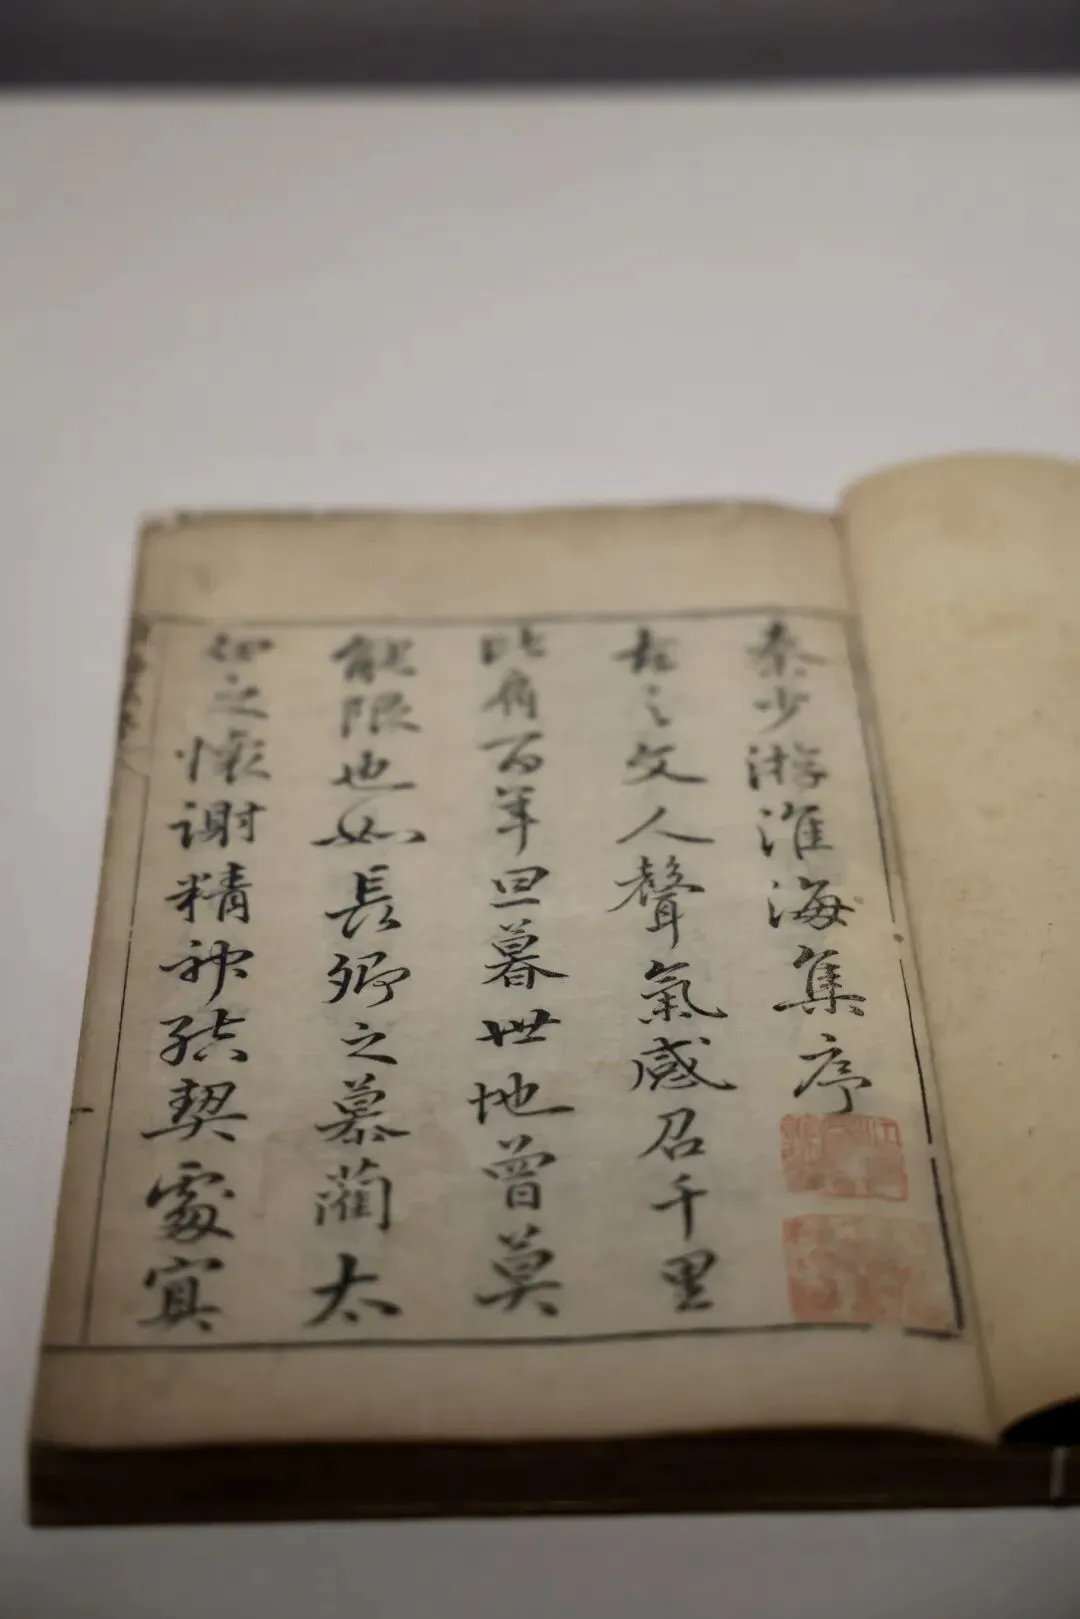 秦少游淮海集序
古之文人聲氣感召千里
比肩百年旦暮世地曾莫
能限也如長卿之慕藺太
白之懷謝精神結契處寘